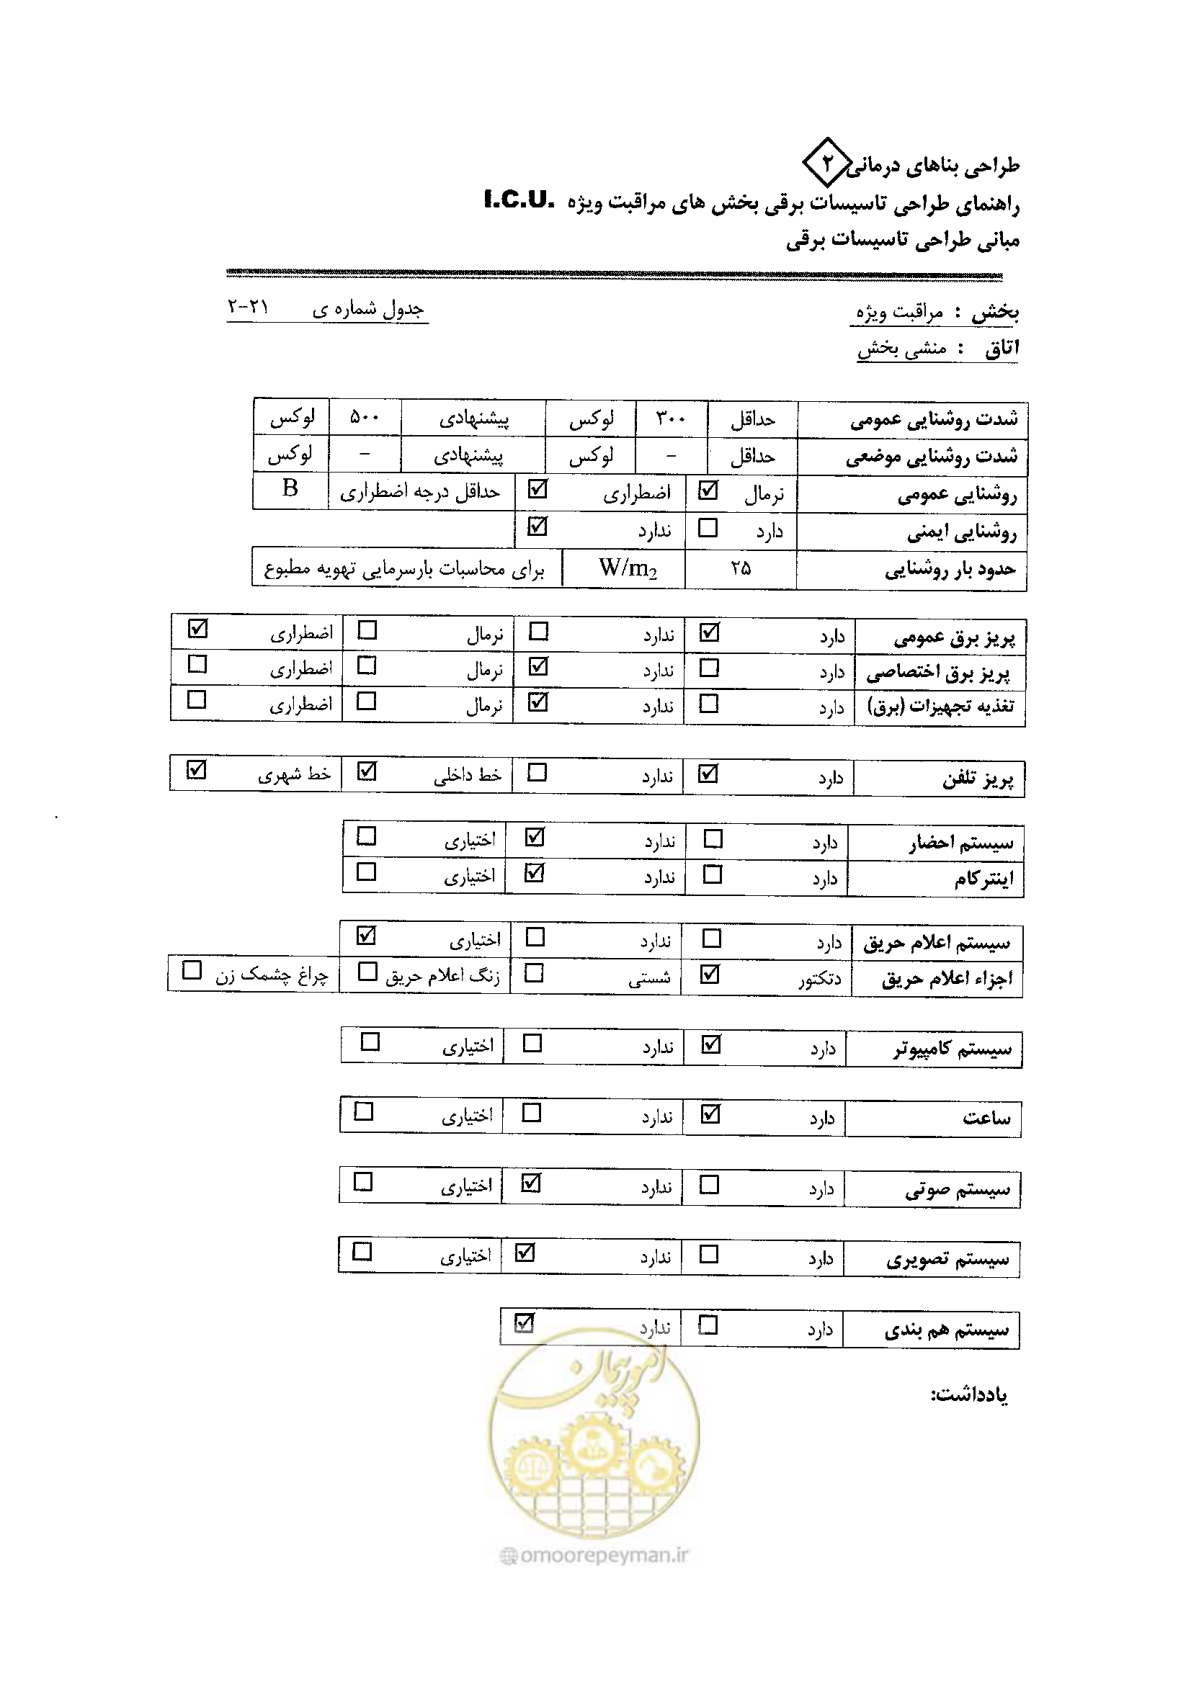 طراحی بناهای درمانی ۲
راهنمای طراحی تاسیسات برقی بخش های مراقبت ویژه I.C.U.
مبانی طراحی تاسیسات برقی
بخش : مراقبت ویژه جدول شماره ی ۲-۲۱
اتاق : منشی بخش
شدت روشنایی عمومی حداقل ۳۰۰ لوکس پیشنهادی ۵۰۰ لوکس
شدت روشنایی موضعی حداقل - لوکس پیشنهادی - لوکس
روشنایی عمومی نرمال ☑ اضطراری ☑ حداقل درجه اضطراری B
روشنایی ایمنی دارد ☐ ندارد ☑
حدود بار روشنایی ۲۵ W/m2 برای محاسبات بارسرمایی تهویه مطبوع
پریز برق عمومی دارد ☑ ندارد ☐ نرمال ☐ اضطراری ☑
پریز برق اختصاصی دارد ☐ ندارد ☑ نرمال ☐ اضطراری ☐
تغذیه تجهیزات (برق) دارد ☐ ندارد ☑ نرمال ☐ اضطراری ☐
پریز تلفن دارد ☑ ندارد ☐ خط داخلی ☑ خط شهری ☑
سیستم احضار دارد ☐ ندارد ☑ اختیاری ☐
اینترکام دارد ☐ ندارد ☑ اختیاری ☐
سیستم اعلام حریق دارد ☐ ندارد ☐ اختیاری ☑
اجزاء اعلام حریق دتکتور ☑ شستی ☐ زنگ اعلام حریق ☐ چراغ چشمک زن ☐
سیستم کامپیوتر دارد ☑ ندارد ☐ اختیاری ☐
ساعت دارد ☑ ندارد ☐ اختیاری ☐
سیستم صوتی دارد ☐ ندارد ☑ اختیاری ☐
سیستم تصویری دارد ☐ ندارد ☑ اختیاری ☐
سیستم هم بندی دارد ☐ ندارد ☑
یادداشت:
امور پیمان
@omoorepeyman.ir